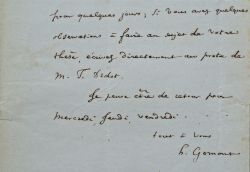 pour quelques jours; si vous avez quelques
observations à faire au sujet de votre
thèse, écrivez directement au prote de
M. F. Didot.
Je pense être de retour pour
Mercredi, Jeudi, vendredi.
tout à vous
h.